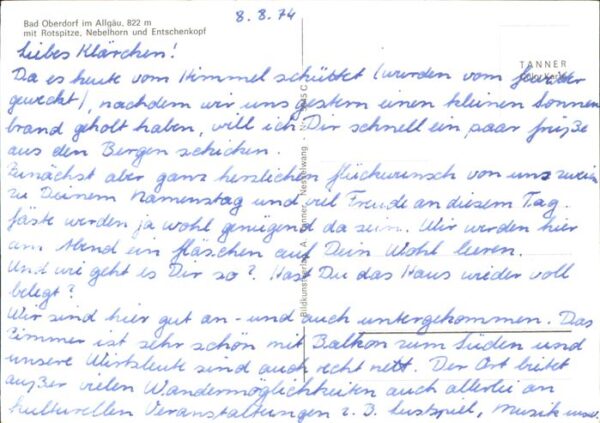 8.8.74
Bad Oberdorf im Allgäu, 822 m
mit Rotspitze, Nebelhorn und Entschenkopf
TANNER
Liebes Klärchen!
Da es heute vom Himmel schüttet (wurden vom Gewitter
geweckt), nachdem wir uns gestern einen kleinen Sonnen
brand geholt haben, will ich Dir schnell ein paar Grüße
aus den Bergen schicken.
Zunächst aber ganz herzlichen Glückwunsch von uns zweien
zu Deinem Namenstag und viel Freude an diesem Tag.
Gäste werden ja wohl genügend da sein. Wir werden hier
am Abend ein Gläschen auf Dein Wohl leeren.
Und wie geht es Dir so? Hast Du das Haus wieder voll
belegt?
Wir sind hier gut an- und auch untergekommen. Das
Zimmer ist sehr schön mit Balkon zum Süden und
unsere Wirtsleute sind auch recht nett. Der Ort bietet
außer vielen Wandermöglichkeiten auch allerlei an
kulturellen Veranstaltungen z. B. Lustspiel, Musik usw.
Bildkunstverlag A. Tanner, Nesselwang